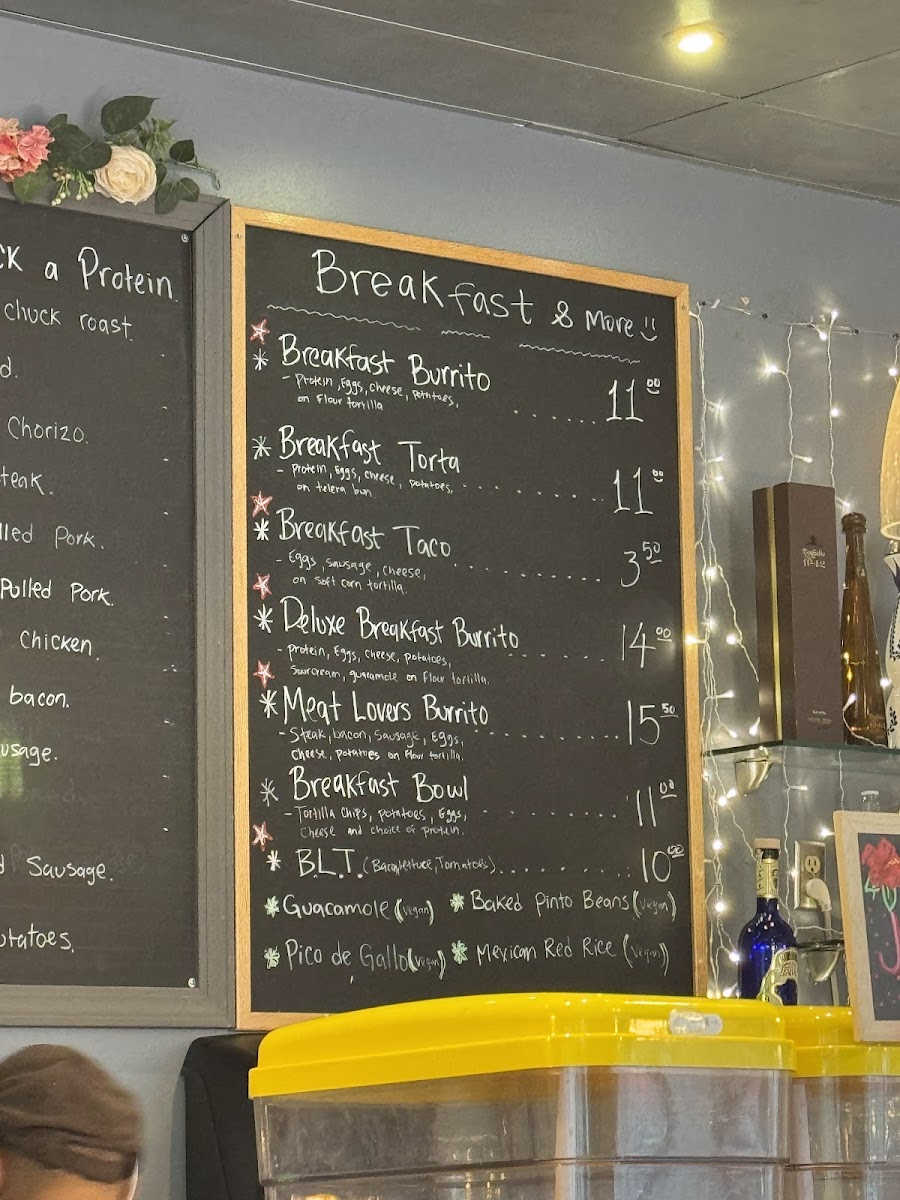 a Protein.
chuck roast.
Chorizo.
Pork.
Pulled Pork.
Chicken
bacon.
Sausage.
Breakfast & More
Breakfast Burrito
- Protein, Eggs, Cheese, Potatoes,
on Flour tortilla
11.00
Breakfast Torta
- protein, Eggs, cheese, potatoes,
on telera bun
11.00
Breakfast Taco
- Eggs, Sausage, Cheese,
on Soft corn tortilla.
3.50
Deluxe Breakfast Burrito
- protein, Eggs, Cheese, potatoes,
Sourcream, guacamole on Flour tortilla.
14.00
Meat Lovers Burrito
- Steak, bacon, Sausage, Eggs,
Cheese, potatoes on Flour tortilla.
15.50
Breakfast Bowl
- Tortilla Chips, potatoes, Eggs,
Cheese and choice of protein.
11.00
B.L.T. (Bacon, lettuce, Tomatoes)
10.00
Guacamole (vegan)
Baked Pinto Beans (vegan)
Pico de Gallo (vegan)
Mexican Red Rice (vegan)